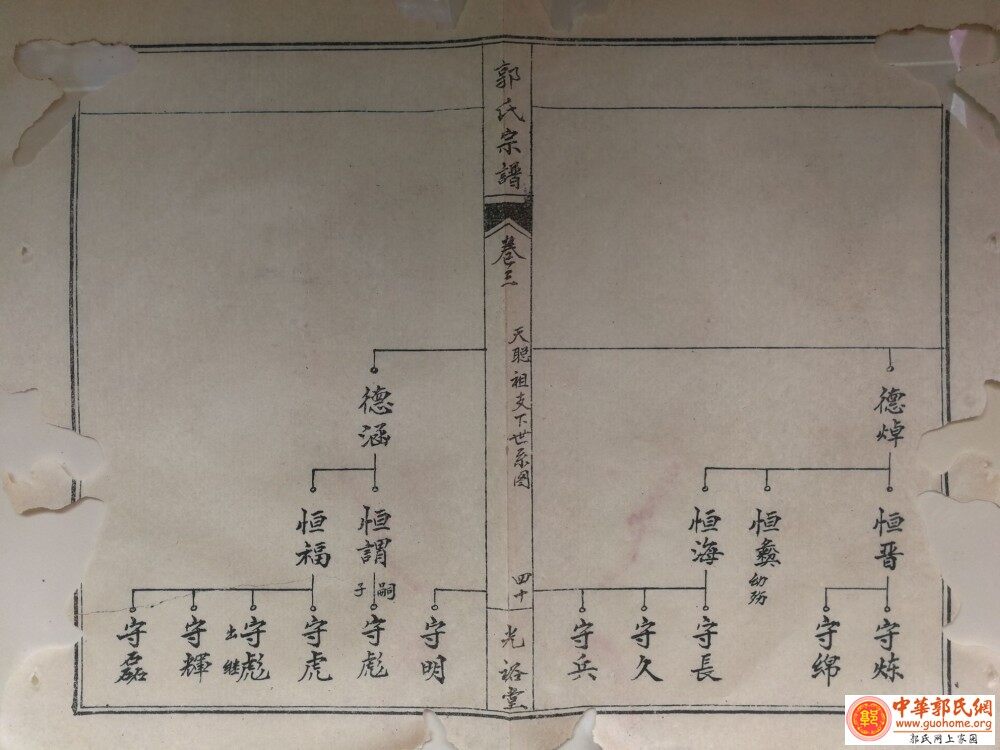 郭氏宗譜
卷三
天聪祖支下世系图
四十
光裕堂
德焯
恒晋
恒彝
幼殇
恒海
守炼
守绵
守長
守久
守兵
守明
德涵
恒謂
嗣子
恒福
守彪
守虎
守彪
出继
守輝
守磊
中華郭氏網
www.guohome.org
郭氏网上家园